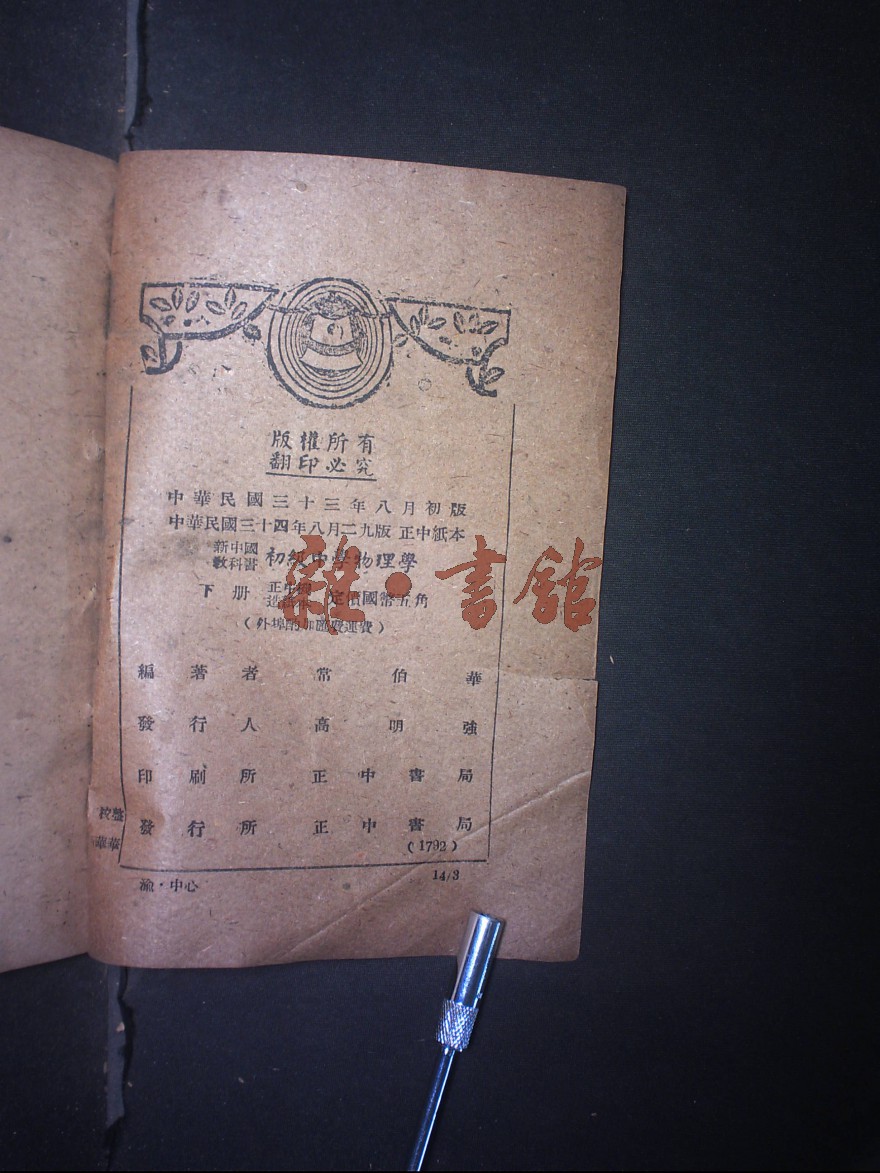 版權所有
翻印必究
中華民國三十三年八月初版
中華民國三十四年八月二九版 正中紙本
新中國
教科書 初級中學物理學
下册 定價國幣五角
(外埠酌加運費)
編著者 常伯華
發行人 高明強
印刷所 正中書局
發行所 正中書局
(1792)
渝·中心 14/3
雜·書館